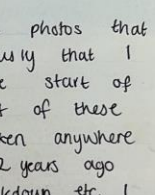 photos that
usly that I
start of
of these
anywhere
years ago
etc. I